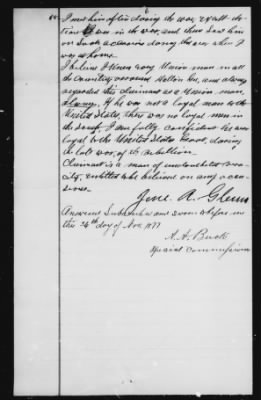 I met him often during the war, & all the
time I was in the war, and then saw him
on such occasions during the war when I
was at home.
I believe I knew every Union man in all
the country around Dalton Ga, and always
regarded this claimant as a Union man,
always. If he was not a loyal man to the
United States, there was no loyal men in
the South. I am fully confident he was
loyal to the United States Govt, during
the late war, of the Rebellion.
Claimant is a man of undoubted vera-
city, entitled to be believed on any occa-
sion.
A. Glenn
Answered Subscribed and sworn to before me
this 26th day of Nov 1877
A. H. Buck
Special Commissioner